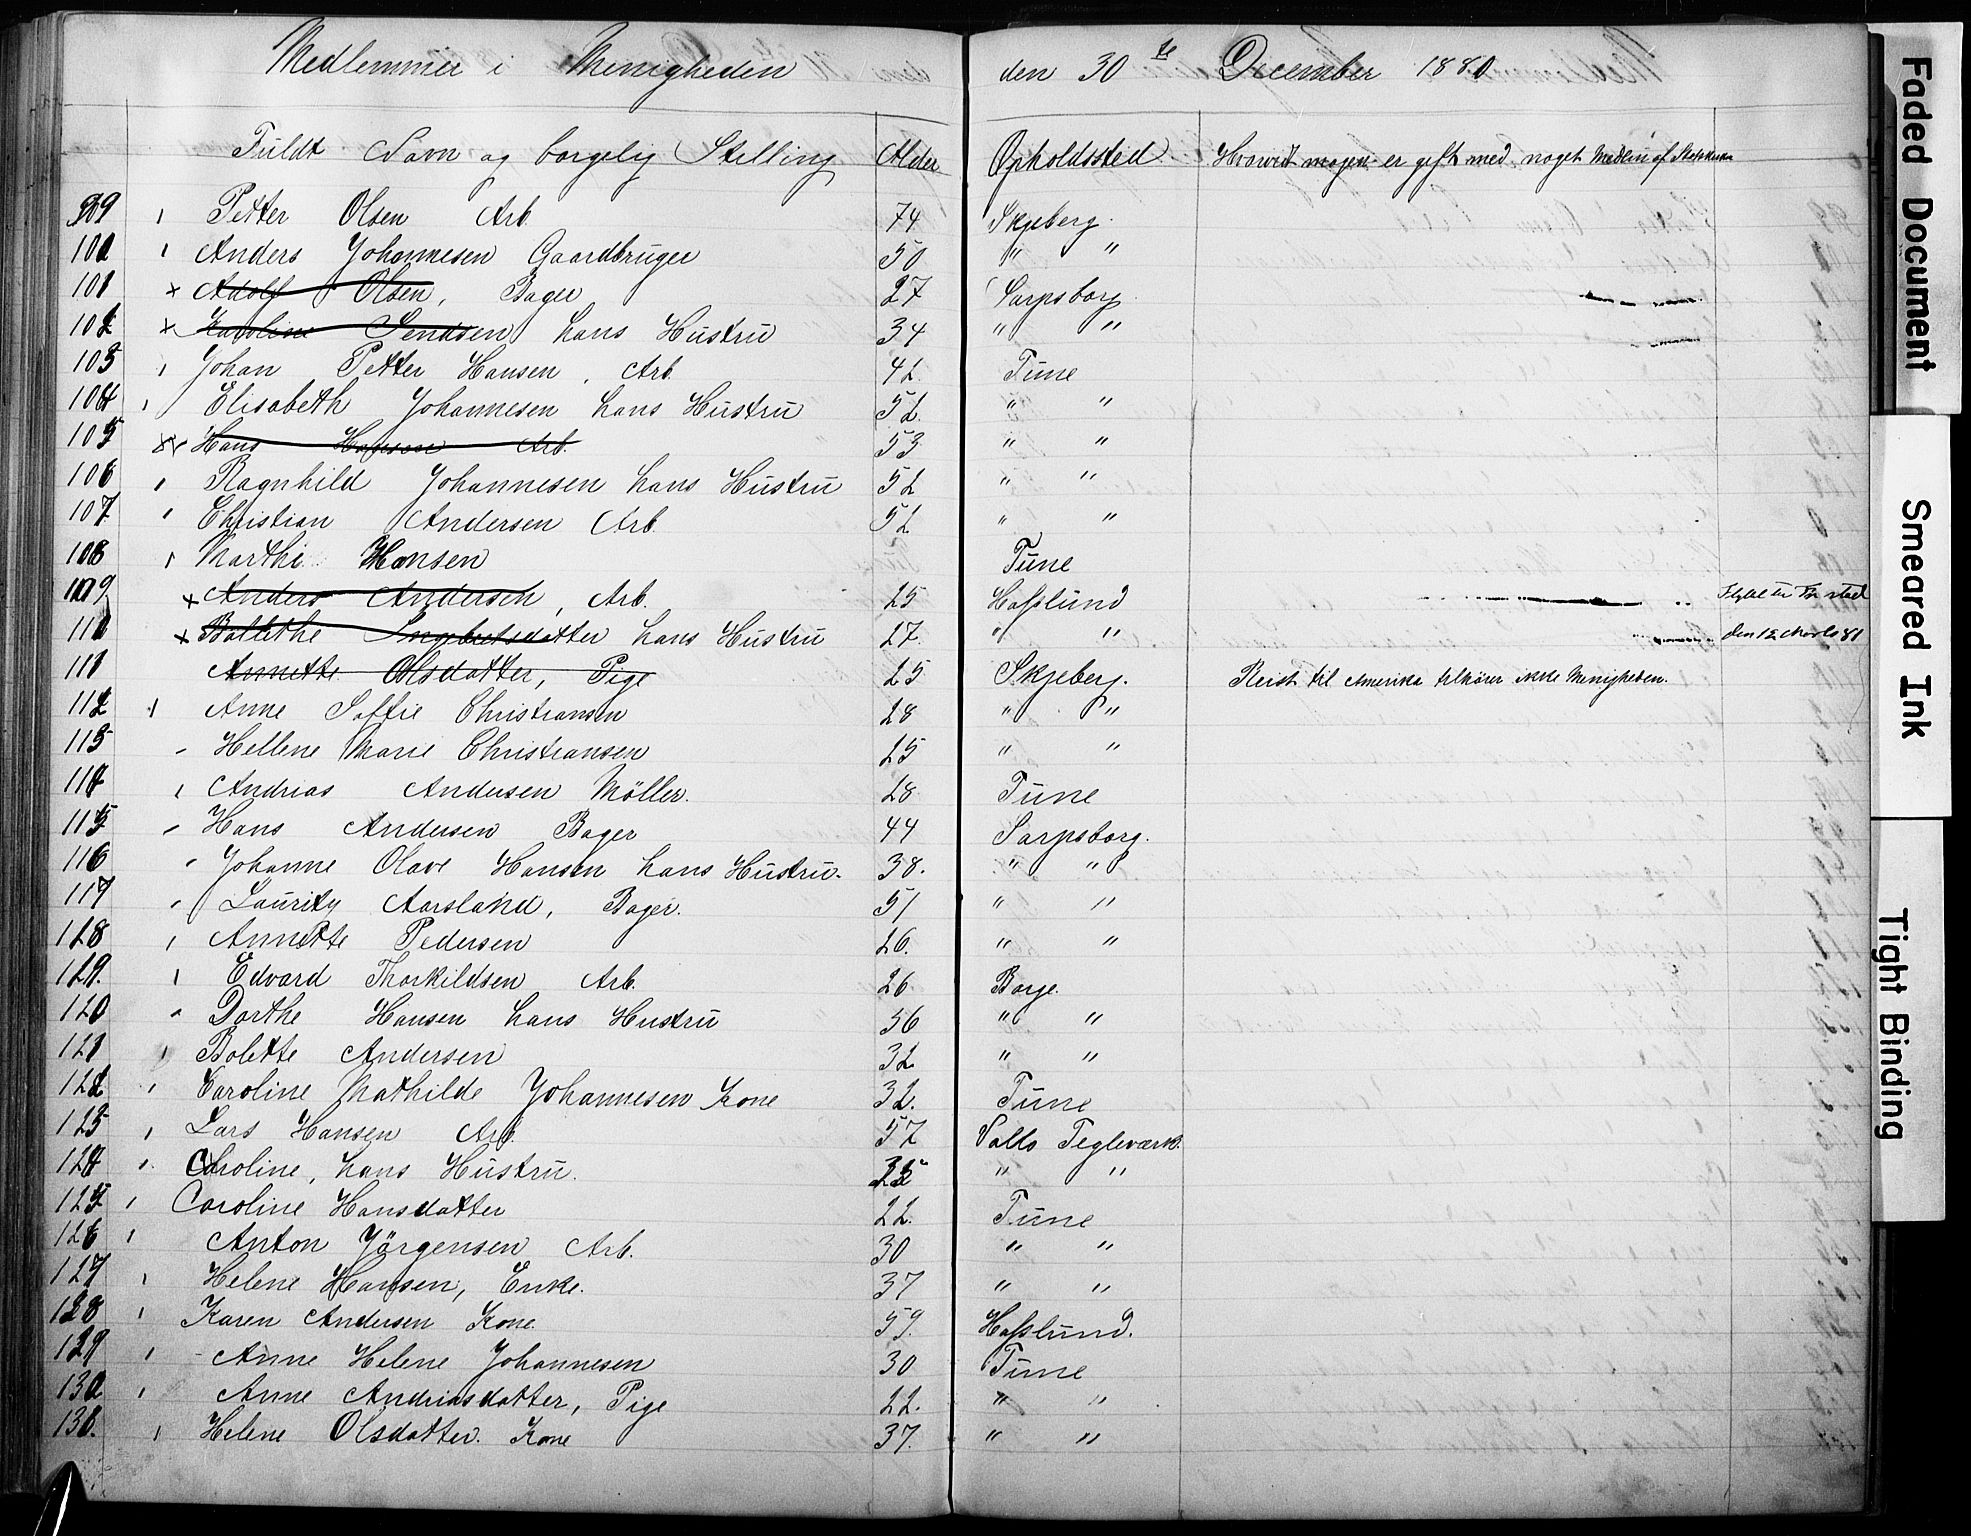 Medlemmer i Menigheden den 30te December 1880
Fuldt Navn og borgelig Stilling Alder Opholdssted Hvorvidt nogen er gift med noget Medlem af Statskirken
99 Petter Olsen Arb. 74 Skjeberg.
100 Anders Johannesen Gaardbruger 50 " "
101 x Adolf Olsen, Bager 27 Sarpsborg
102 x Karoline Sendsen hans Hustru 34 " "
103 Johan Petter Hansen, Arb. 42 Tune
104 Elisabeth Johannesen hans Hustru 52 " "
105 Hans Hansen Arb. 53 " "
106 Ragnhild Johannesen hans Hustru 52 " "
107 Christian Andersen Arb. 52 " "
108 Marthe Hansen Tune
109 x Anders Andersen, Arb. 25 Hafslund
110 x Bollethe Ingebretsdatter hans Hustru 27. " " den 12 Marts 81
111 Annette Olsdatter, Pige 25 Skjeberg. Reist til Amerika tilhører ikke Menigheden.
112 Anne Soffie Christiansen 28 " "
113 Hellene Marie Christiansen 25 " "
114 Andrias Andersen Möller. 28 Tune
115 Hans Andersen Bager 44 Sarpsborg.
116 Johanne Olave Hansen hans Hustru. 38. " "
117 Lauritz Aarsland, Bager. 51 " "
118 Annette Pedersen 26. " "
119. Edvard Thorkildsen Arb. 26 Borge.
120 Dorthe Hansen hans Hustru 36 " "
121 Bolette Andersen 32 " "
122 Caroline Mathilde Johannesen Kone 32. Tune
123 Lars Hansen Arb. 57 Valls Tegleværk.
124 Caroline, hans Hustru. " "
125 Caroline Hansdatter 22. Tune
126 Anton Jörgensen Arb. 30 " "
127 Helene Hansen, Enke. 37 " "
128 Karen Andersen Kone. 59. Hafslund.
129 Anne Helene Johannesen 30 Tune
130 Anne Andriasdatter, Pige 22. " "
131. Helene Olsdatter. Kone 37. " "
Faded Document
Smeared Ink
Tight Binding